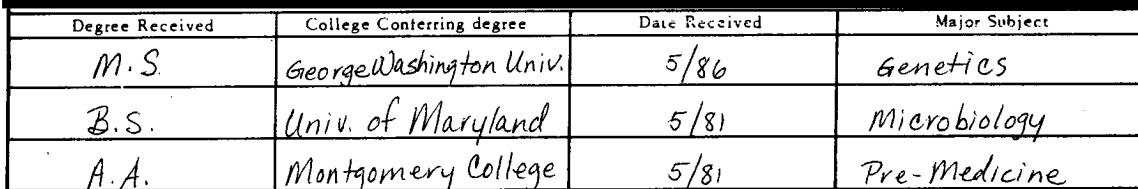 Degree Received College Conferring degree Date Received Major Subject
M.S. George Washington Univ. 5/86 Genetics
B.S. Univ. of Maryland 5/81 Microbiology
A.A. Montgomery College 5/81 Pre-Medicine